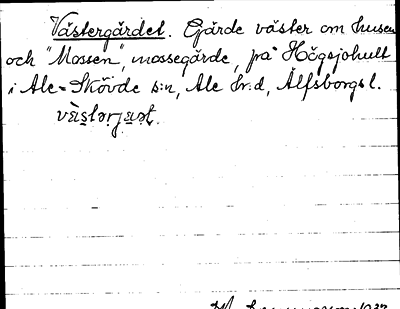 Västergärdet. Gärde väster om husen
och "Mossen", mossegärde, på Högsjohult
i Ale-Skövde s:n, Ale hr.d, Älfsborgs l.
1937